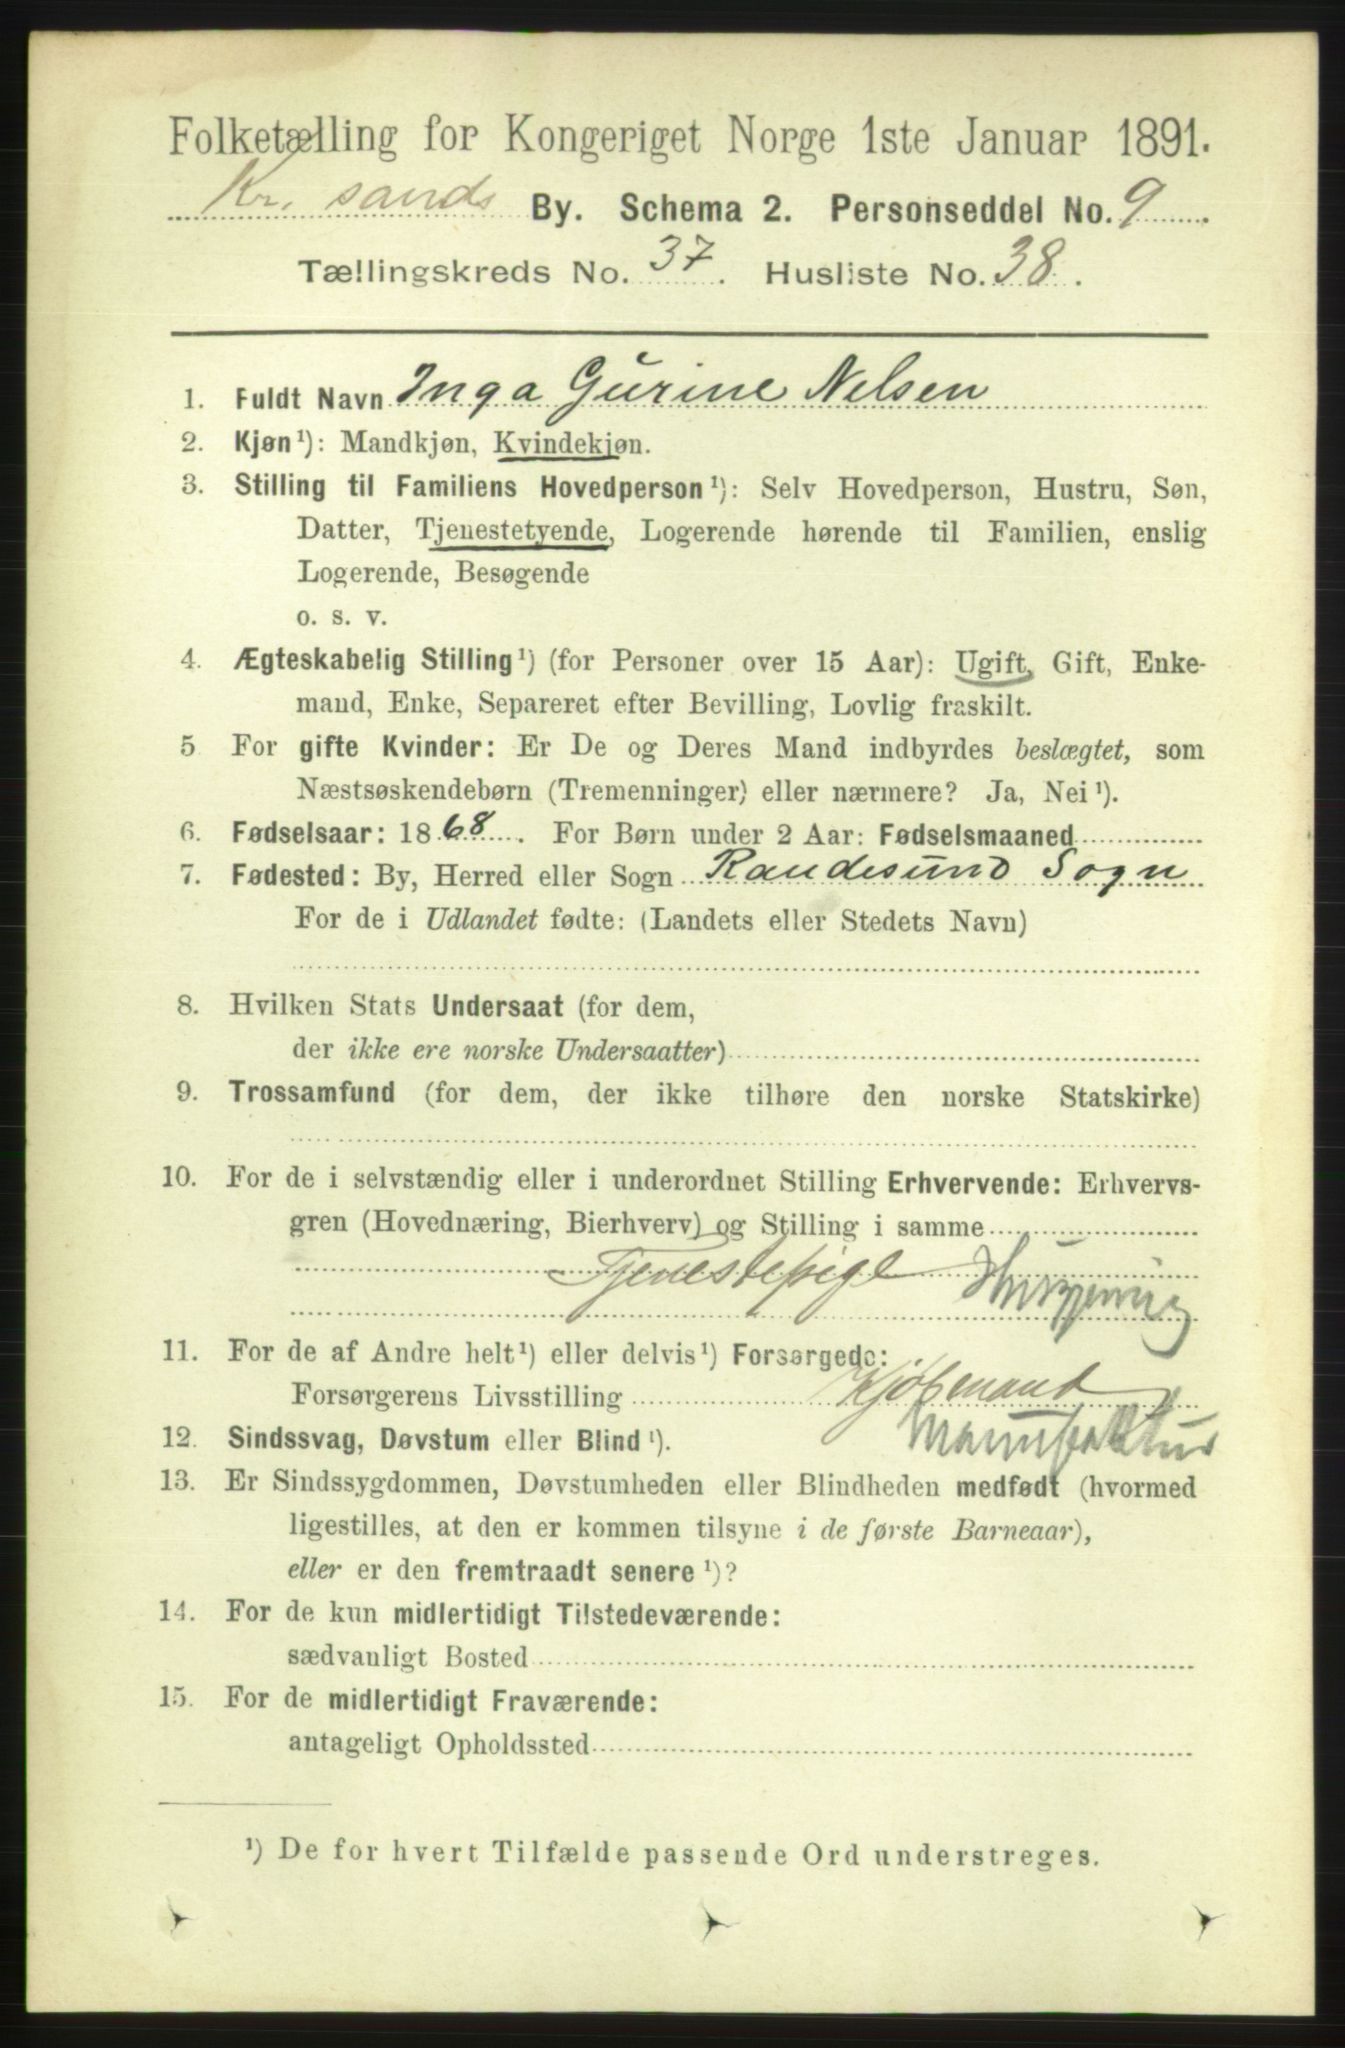 Folketælling for Kongeriget Norge 1ste Januar 1891.
Kr. sands By. Schema 2. Personseddel No. 9.
Tællingskreds No. 37. Husliste No. 38.
1. Fuldt Navn Inga Gurine Nelsen
2. Kjøn¹): Mandkjøn, Kvindekjøn.
3. Stilling til Familiens Hovedperson¹): Selv Hovedperson, Hustru, Søn,
Datter, Tjenestetyende, Logerende hørende til Familien, enslig
Logerende, Besøgende
o. s. v.
4. Ægteskabelig Stilling¹) (for Personer over 15 Aar): Ugift, Gift, Enke-
mand, Enke, Separeret efter Bevilling, Lovlig fraskilt.
5 For gifte Kvinder: Er De og Deres Mand indbyrdes beslægtet, som
Næstsøskendebørn (Tremenninger) eller nærmere? Ja, Nei¹).
6. Fødselsaar: 1868. For Børn under 2 Aar: Fødselsmaaned
7. Fødested: By, Herred eller Sogn Randesund Sogn
For de i Udlandet fødte: (Landets eller Stedets Navn)
8. Hvilken Stats Undersaat (for dem,
der ikke ere norske Undersaatter)
9. Trossamfund (for dem, der ikke tilhøre den norske Statskirke)
10. For de i selvstændig eller i underordnet Stilling Erhvervende: Erhvervs-
gren (Hovednæring, Bierhverv) og Stilling i samme
Tjenestepige
11. For de af Andre helt¹) eller delvis¹) Forsørgede:
Forsørgerens Livsstilling Kjøbmand
Manufaktur
12. Sindssvag, Døvstum eller Blind¹).
13. Er Sindssygdommen, Døvstumheden eller Blindheden medfødt (hvormed
ligestilles, at den er kommen tilsyne i de første Barneaar),
eller er den fremtraadt senere¹)?
14. For de kun midlertidigt Tilstedeværende:
sædvanligt Bosted
15. For de midlertidigt Fraværende:
antageligt Opholdssted
¹) De for hvert Tilfælde passende Ord understreges.